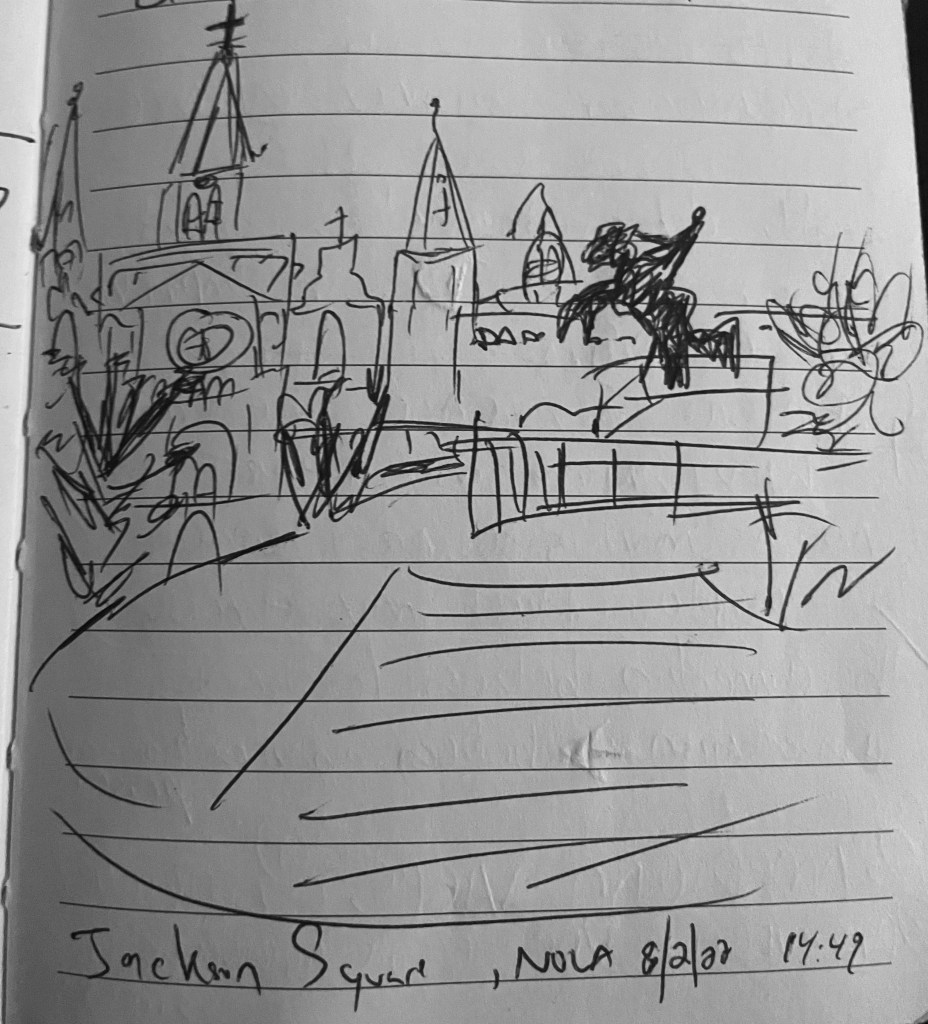 Jackson Square, NOLA 8/2/22 14:49